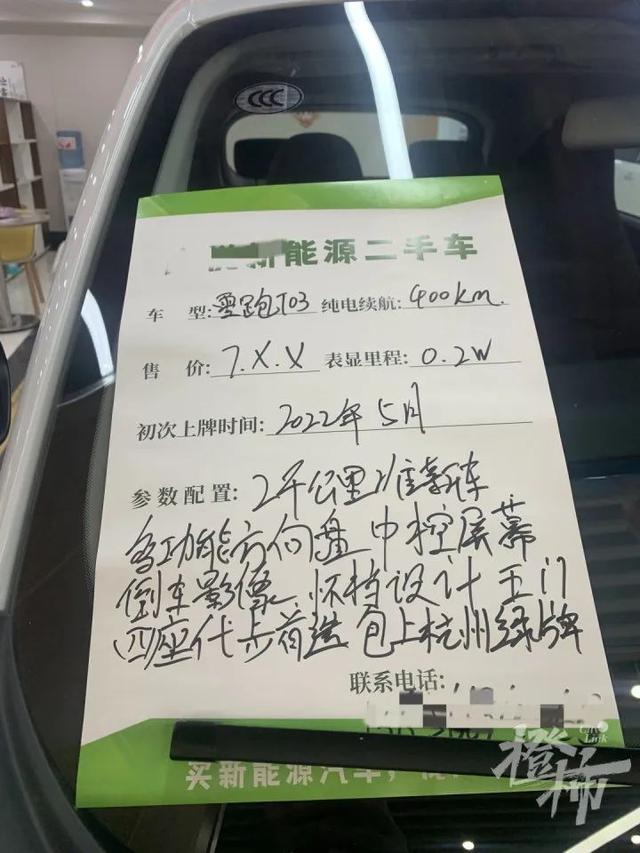 CCC
新能源二手车
车 型: 零跑T03 纯电续航: 400km.
售 价: 7.X.X 表显里程: 0.2W
初次上牌时间: 2022年5月
参数配置: 2千公里准新车
多功能方向盘 中控屏幕
倒车影像 怀档设计 五门
四座代步首选 包上杭州绿牌
联系电话:
买新能源汽车,
橙柿